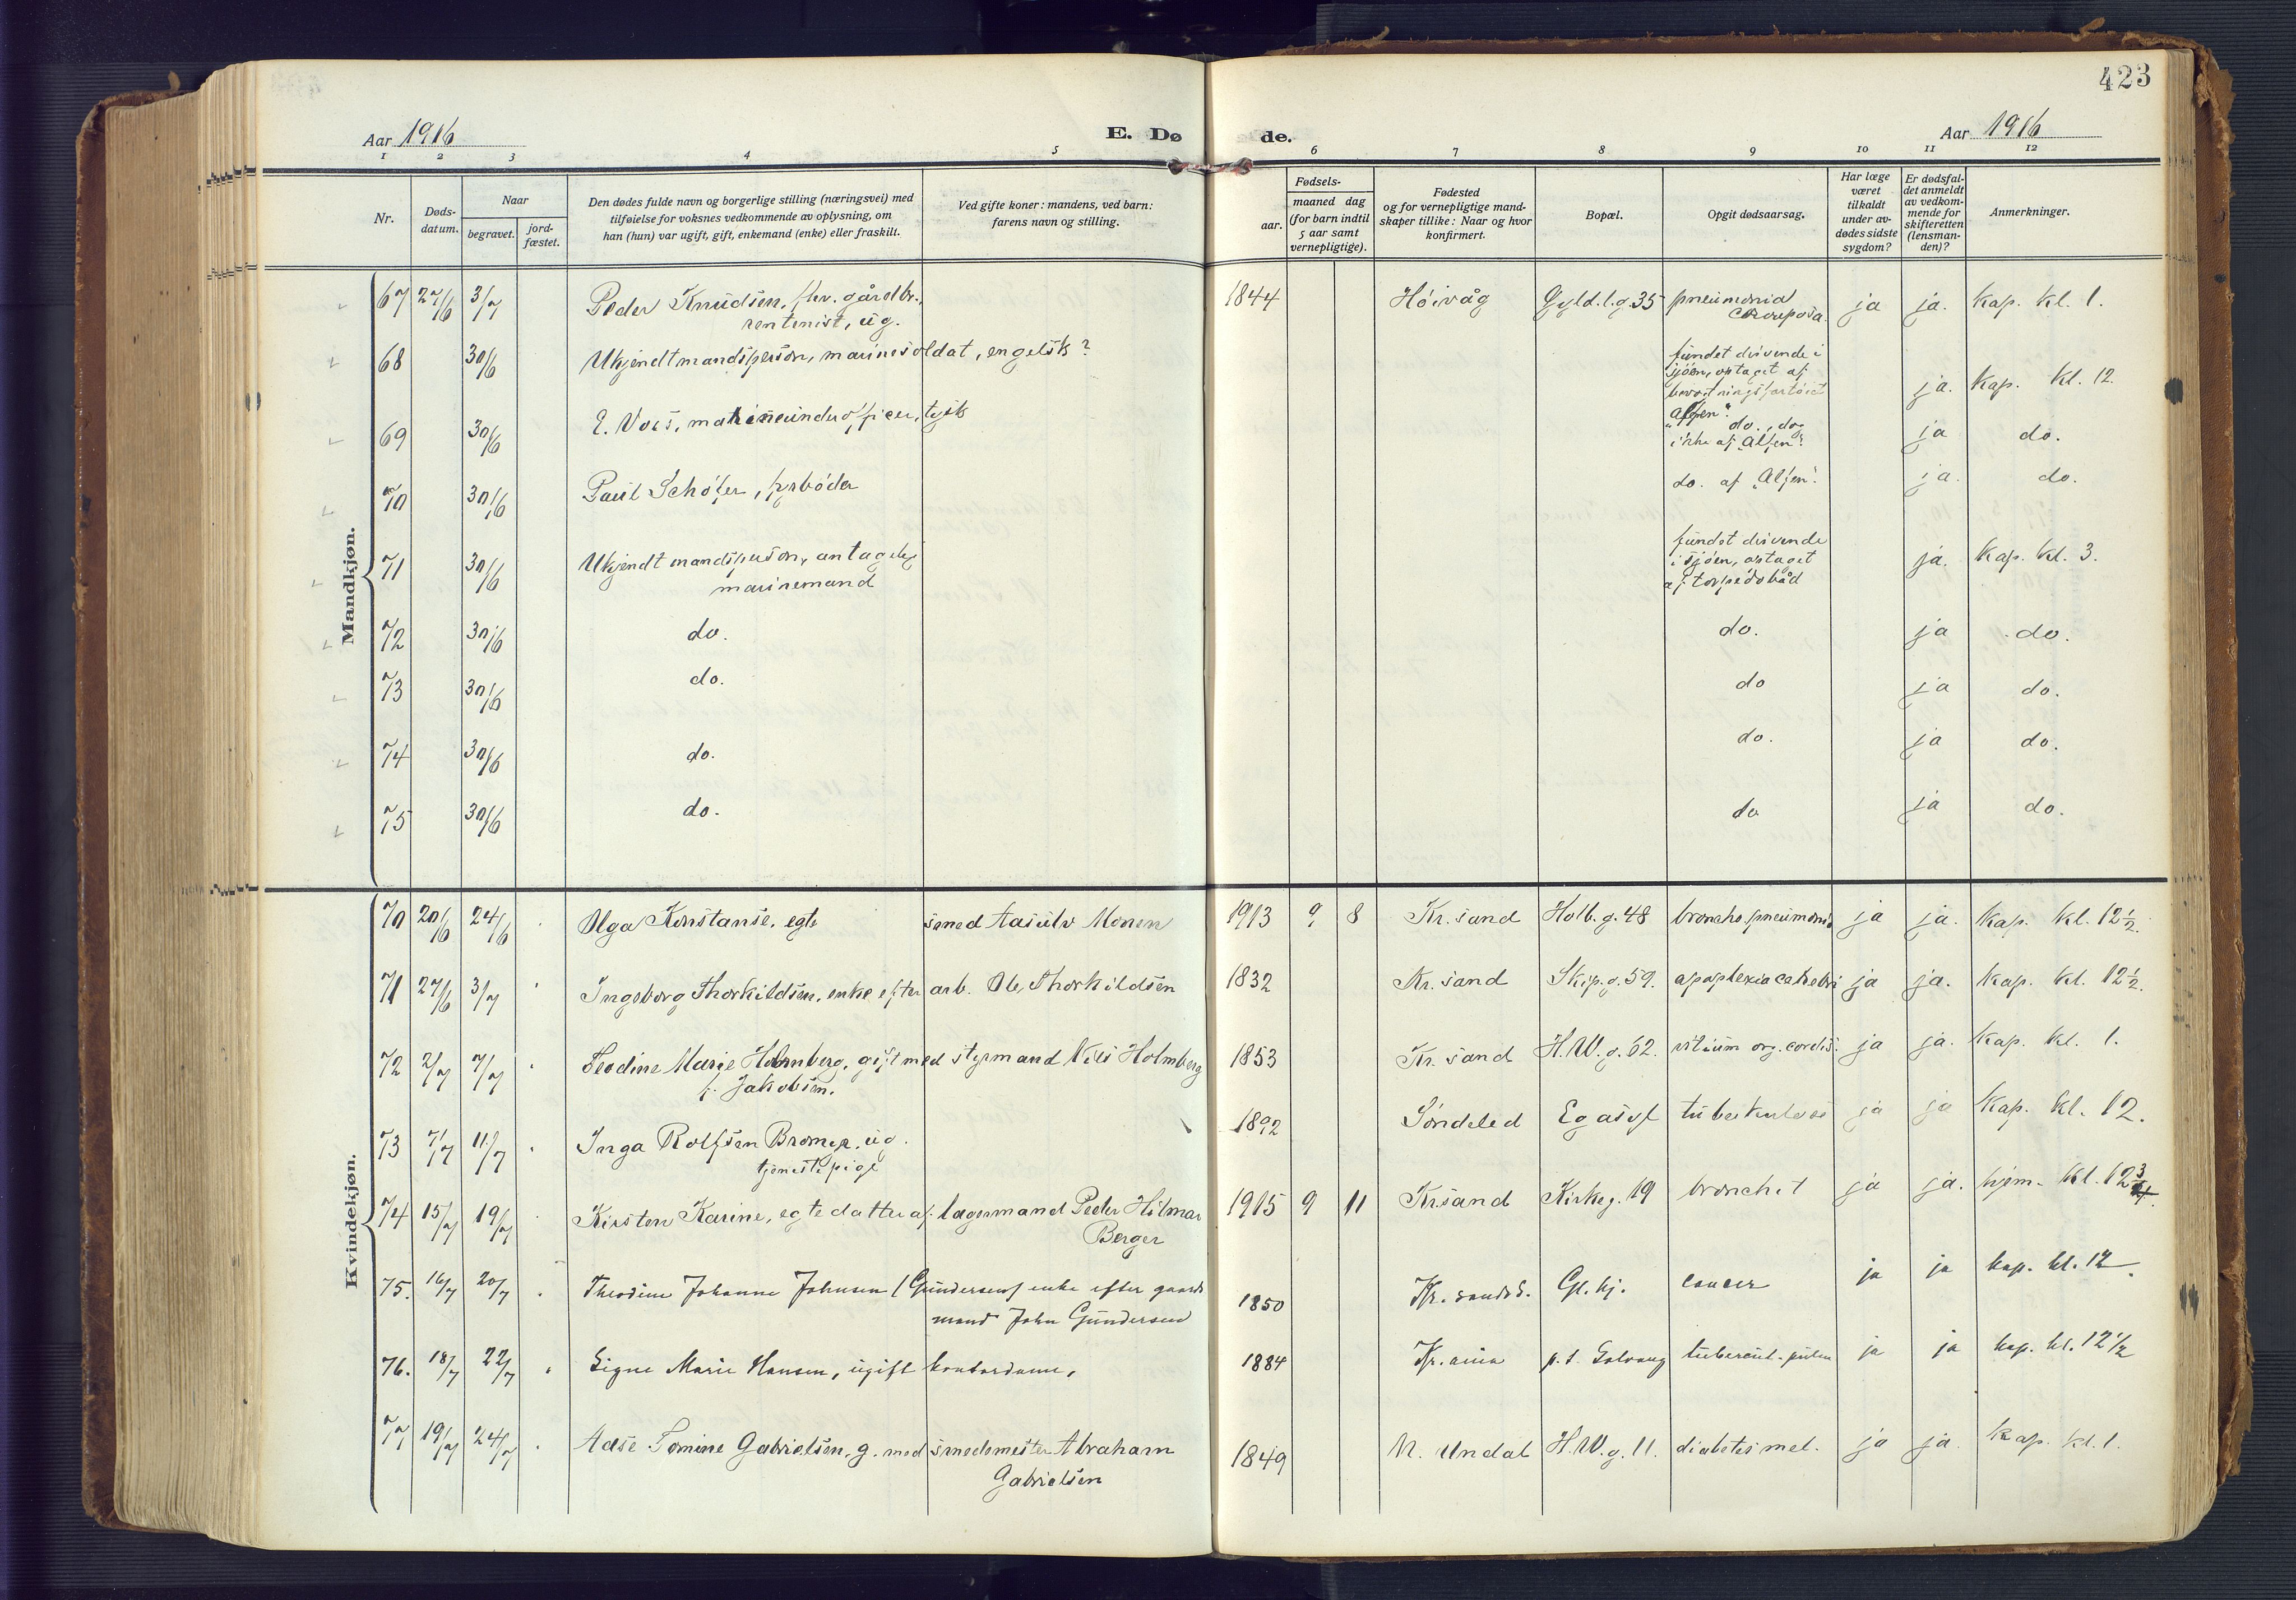 423
Aar 1916 E. Døde. Aar 1916
1 2 3 4 5 6 7 8 9 10 11 12
Nr.
Døds-
datum.
Naar
begravet.
jord-
fæstet.
Den dødes fulde navn og borgerlige stilling (næringsvei) med
tilføielse for voksnes vedkommende av oplysning, om
han (hun) var ugift, gift, enkemand (enke) eller fraskilt.
Ved gifte koner: mandens, ved barn:
farens navn og stilling.
Fødsels-
aar.
maaned dag
(for barn indtil
5 aar samt
vernepligtige).
Fødested
og for vernepligtige mand-
skaper tillike: Naar og hvor
konfirmert.
Bopæl.
Opgit dødsaarsag.
Har læge
været
tilkaldt
under av-
dødes sidste
sygdom?
Er dødsfal-
det anmeldt
av vedkom-
mende for
skifteretten
(lensman-
den)?
Anmerkninger.
Mandkjøn.
67 27/6 3/7 Peder Knudsen, fhv. gårdbr., 1844 Høivåg Gyld.l.g.35 pneumonia ja ja. Kap. kl. 1.
rentenist, ug. crouposa.
68 30/6 Ukjendt mandsperson, marinesoldat, engelsk? fundet drivende i
sjøen, optaget af ja. Kap. kl. 12.
bevogtningsfartøiet
"Alfen".
69 30/6 E. Vois, marineunderofficer, tysk do., dog ja do.
ikke af "Alfen".
70 30/6 Paul Schöfer, fyrbøder do. af "Alfen". ja. do.
71 30/6 Ukjendt mandsperson, antagelig fundet drivende ja. Kap. kl. 3.
marinemand i sjøen, optaget
af torpedobåd
72 30/6 do. do. ja do.
73 30/6 do. do ja do.
74 30/6 do. do. ja do.
75 30/6 do. do ja do.
Kvindekjøn.
70 20/6 24/6 Olga Konstanse, egte smed Aasulv Monen 1913 9 8 Kr.sand Holb.g.48 bronchopneumoni ja ja. Kap. kl. 12 1/2.
71 27/6 3/7 Ingeborg Thorkildsen, enke efter arb. Ole Thorkildsen 1832 Kr.sand Skip.g.59. apoplexia cerebri ja ja. Kap. kl. 12 1/2.
72 2/7 7/7 Teodine Marie Holmberg, gift med styrmand Nils Holmberg 1853 Kr.sand H.W.g.62. vitium org. cordis. ja ja. Kap. kl. 1.
f. Jakobsen.
73 7/7 11/7 Inga Rolfsen Bromer, ug. 1892 Søndeled Eg asyl tuberkulose ja ja Kap. kl. 12.
tjenestepige
74 15/7 19/7 Kirsten Karine, egte datter af lagermand Peder Hilmar 1915 9 11 Kr.sand Kirkeg. 19 bronchit ja ja. hjem. kl. 12 3/4.
Berger
75. 16/7 20/7 Theodine Johanne Johnsen (Gundersen) enke efter gaards 1850 Kr.sands. Gl. kj. cancer ja ja kap. kl. 12.
mand John Gundersen
76. 18/7 22/7 Signe Marie Hansen, ugift kontordame, 1884 Kr.ania p.t. Solvang tubercul. pulm ja ja kap. kl. 12 1/2
77 19/7 24/7 Aase Tomine Gabrielsen, g. med smedemester Abraham 1849 N. Undal H.W.g. 11. diabetes mel. ja ja. Kap. kl. 1.
Gabrielsen